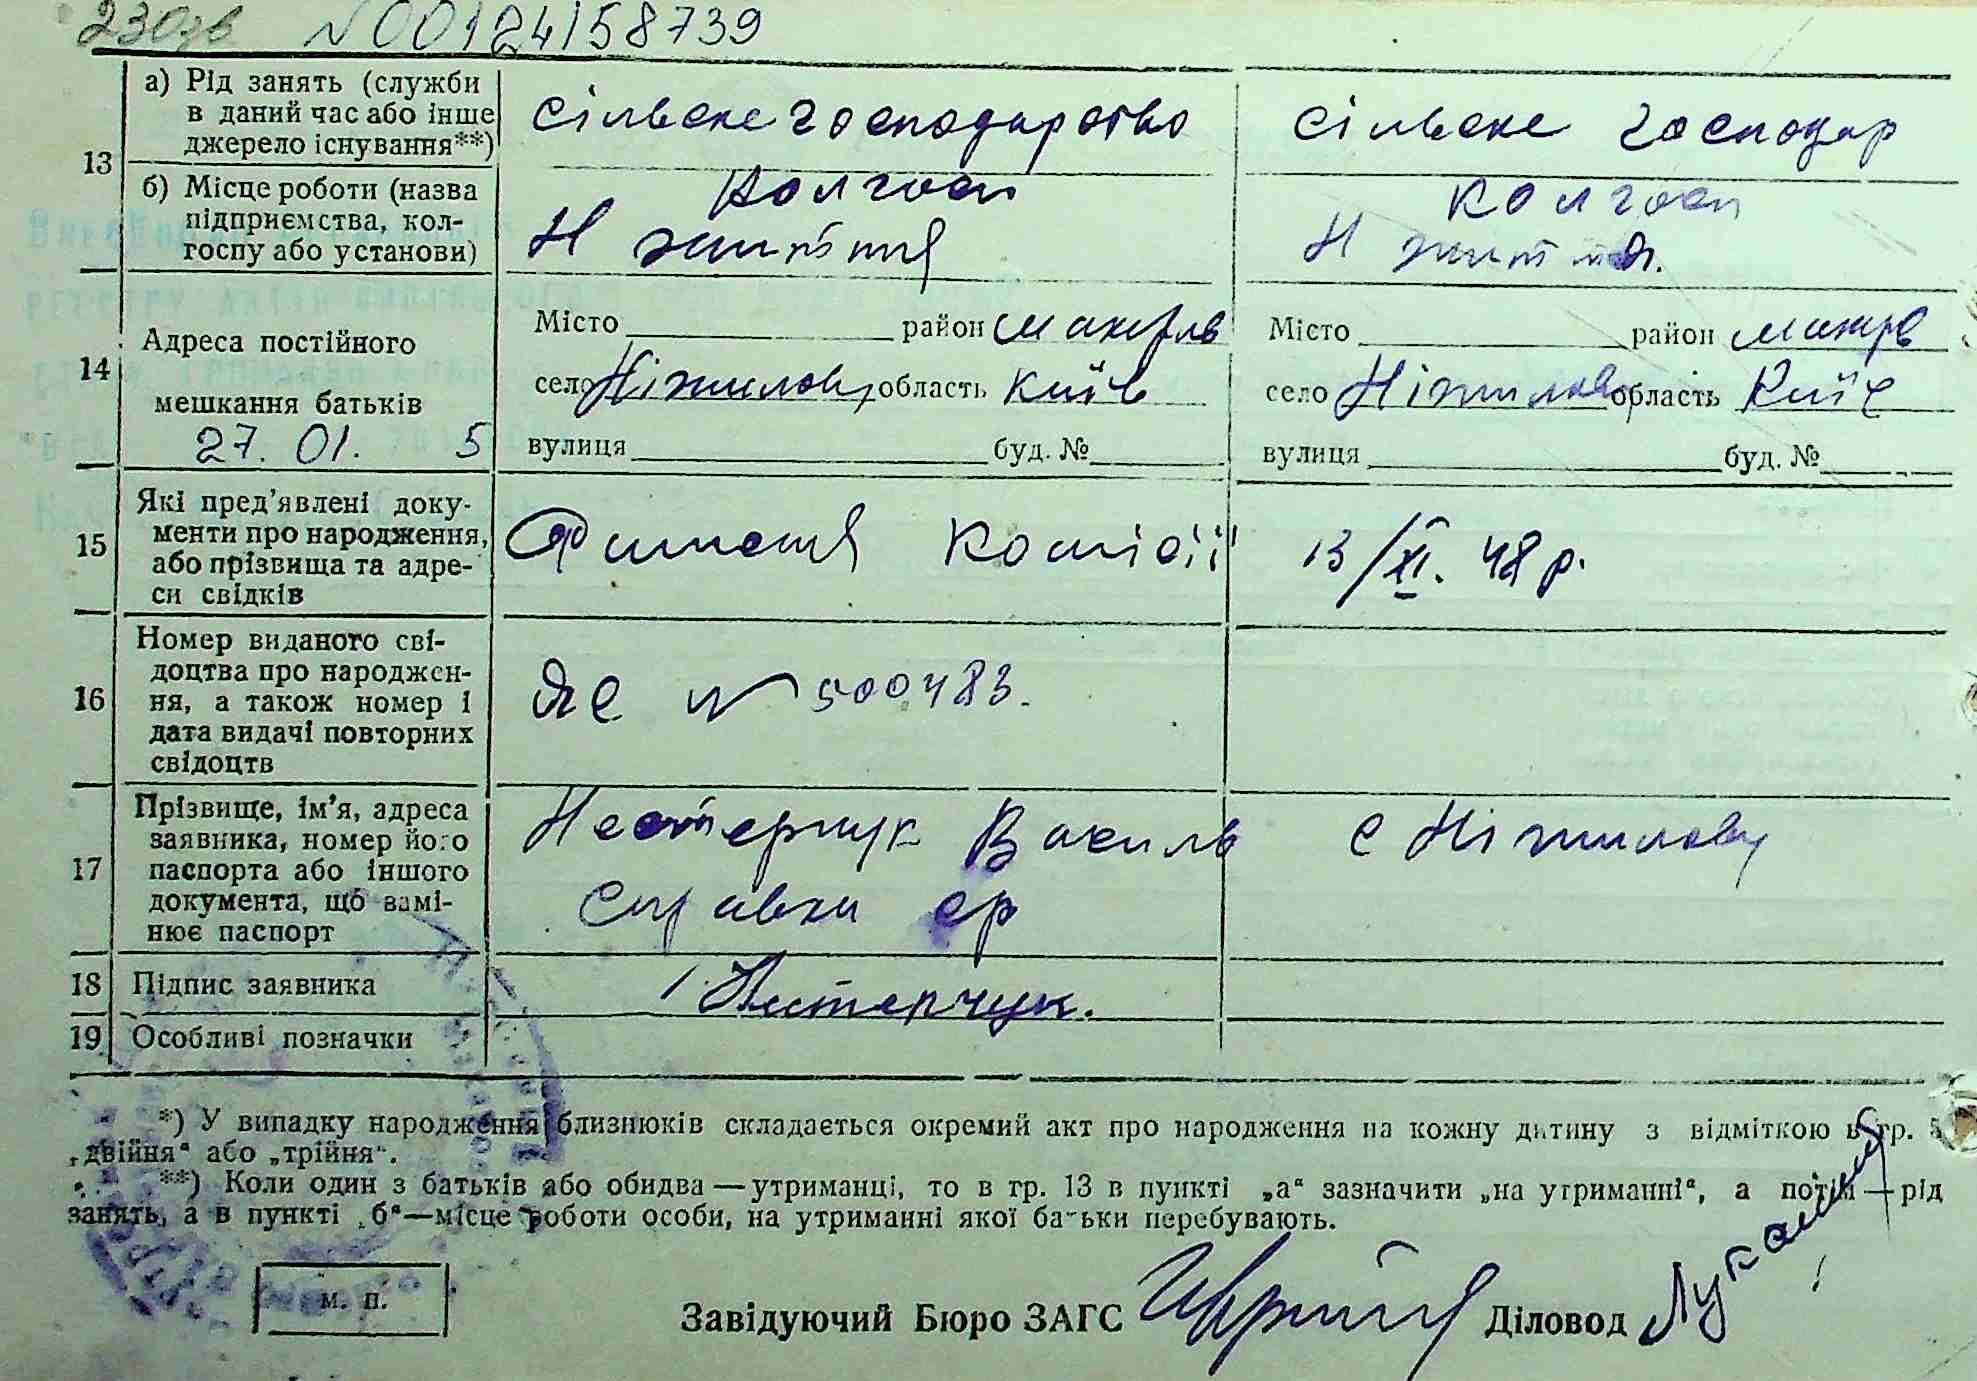 230зв N00124158739
13 а) Рід занять (служби в даний час або інше джерело існування**) сільське господарство сільське господар
б) Місце роботи (назва підприємства, колгоспу або установи) Колгосп Н життя Колгосп Н життя.
14 Адреса постійного мешкання батьків
27. 01. 5
Місто район Макарів Місто район Макарів
село Ніжиловичі область Київ село Ніжиловичі область Київ
вулиця буд. № вулиця буд. №
15 Які пред'явлені документи про народження, або прізвища та адреси свідків комісії 13/XI. 48 р.
16 Номер виданого свідоцтва про народження, а також номер і дата видачі повторних свідоцтв ЯЕ N 500483.
17 Прізвище, ім'я, адреса заявника, номер його паспорта або іншого документа, що замінює паспорт Нестерчук Василь с Ніжиловичі
справка ср
18 Підпис заявника Нестерчук.
19 Особливі позначки
*) У випадку народження близнюків складається окремий акт про народження на кожну дитину з відміткою в гр. 5
„двійня“ або „трійня“.
**) Коли один з батьків або обидва—утриманці, то в гр. 13 в пункті „а“ зазначити „на утриманні“, а потім—рід
занять, а в пункті „б“—місце роботи особи, на утриманні якої батьки перебувають.
м. п.
Завідуючий Бюро ЗАГС Діловод